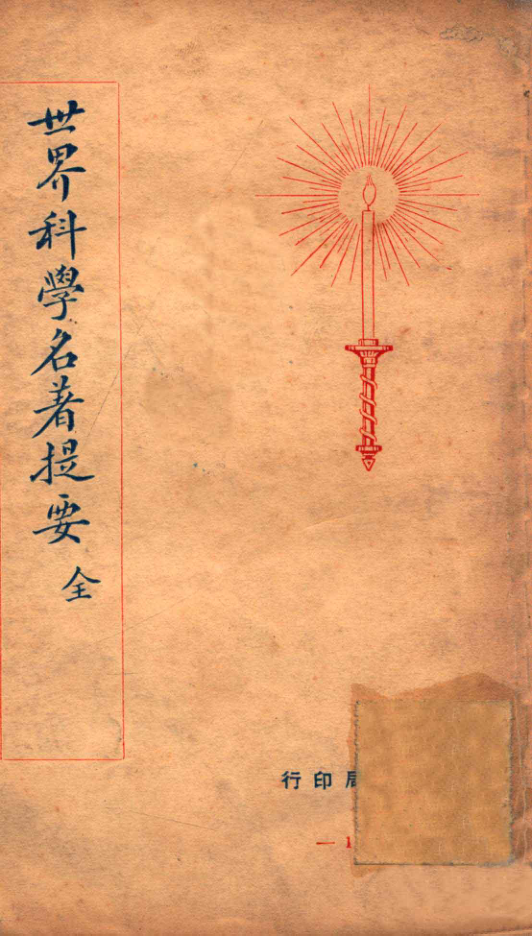 世界科學名著提要 全
行印局
一 1